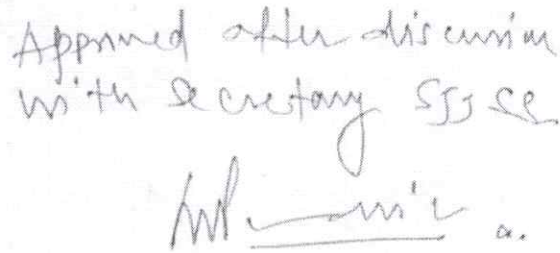 Approved after discussion
with Secretary